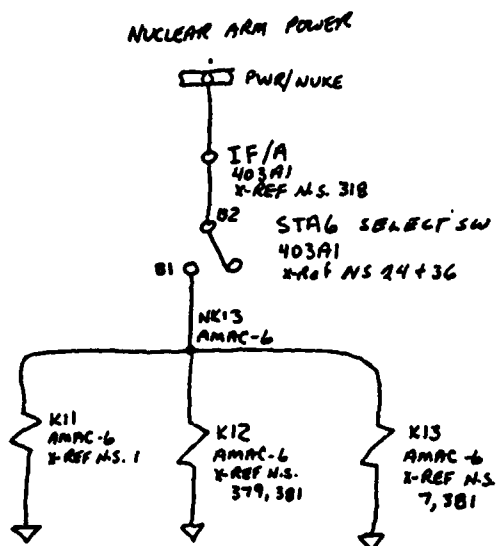 NUCLEAR ARM POWER
PWR/NUKE
IF/A
403A1
X-REF N.S. 318
B2
STA6 SELECT SW
403A1
X-Ref NS 24 + 36
B1
NK13
AMAC-6
K11
AMAC-6
X-REF N.S. 1
K12
AMAC-6
X-REF N.S.
379, 381
K13
AMAC-6
X-REF N.S.
7, 381